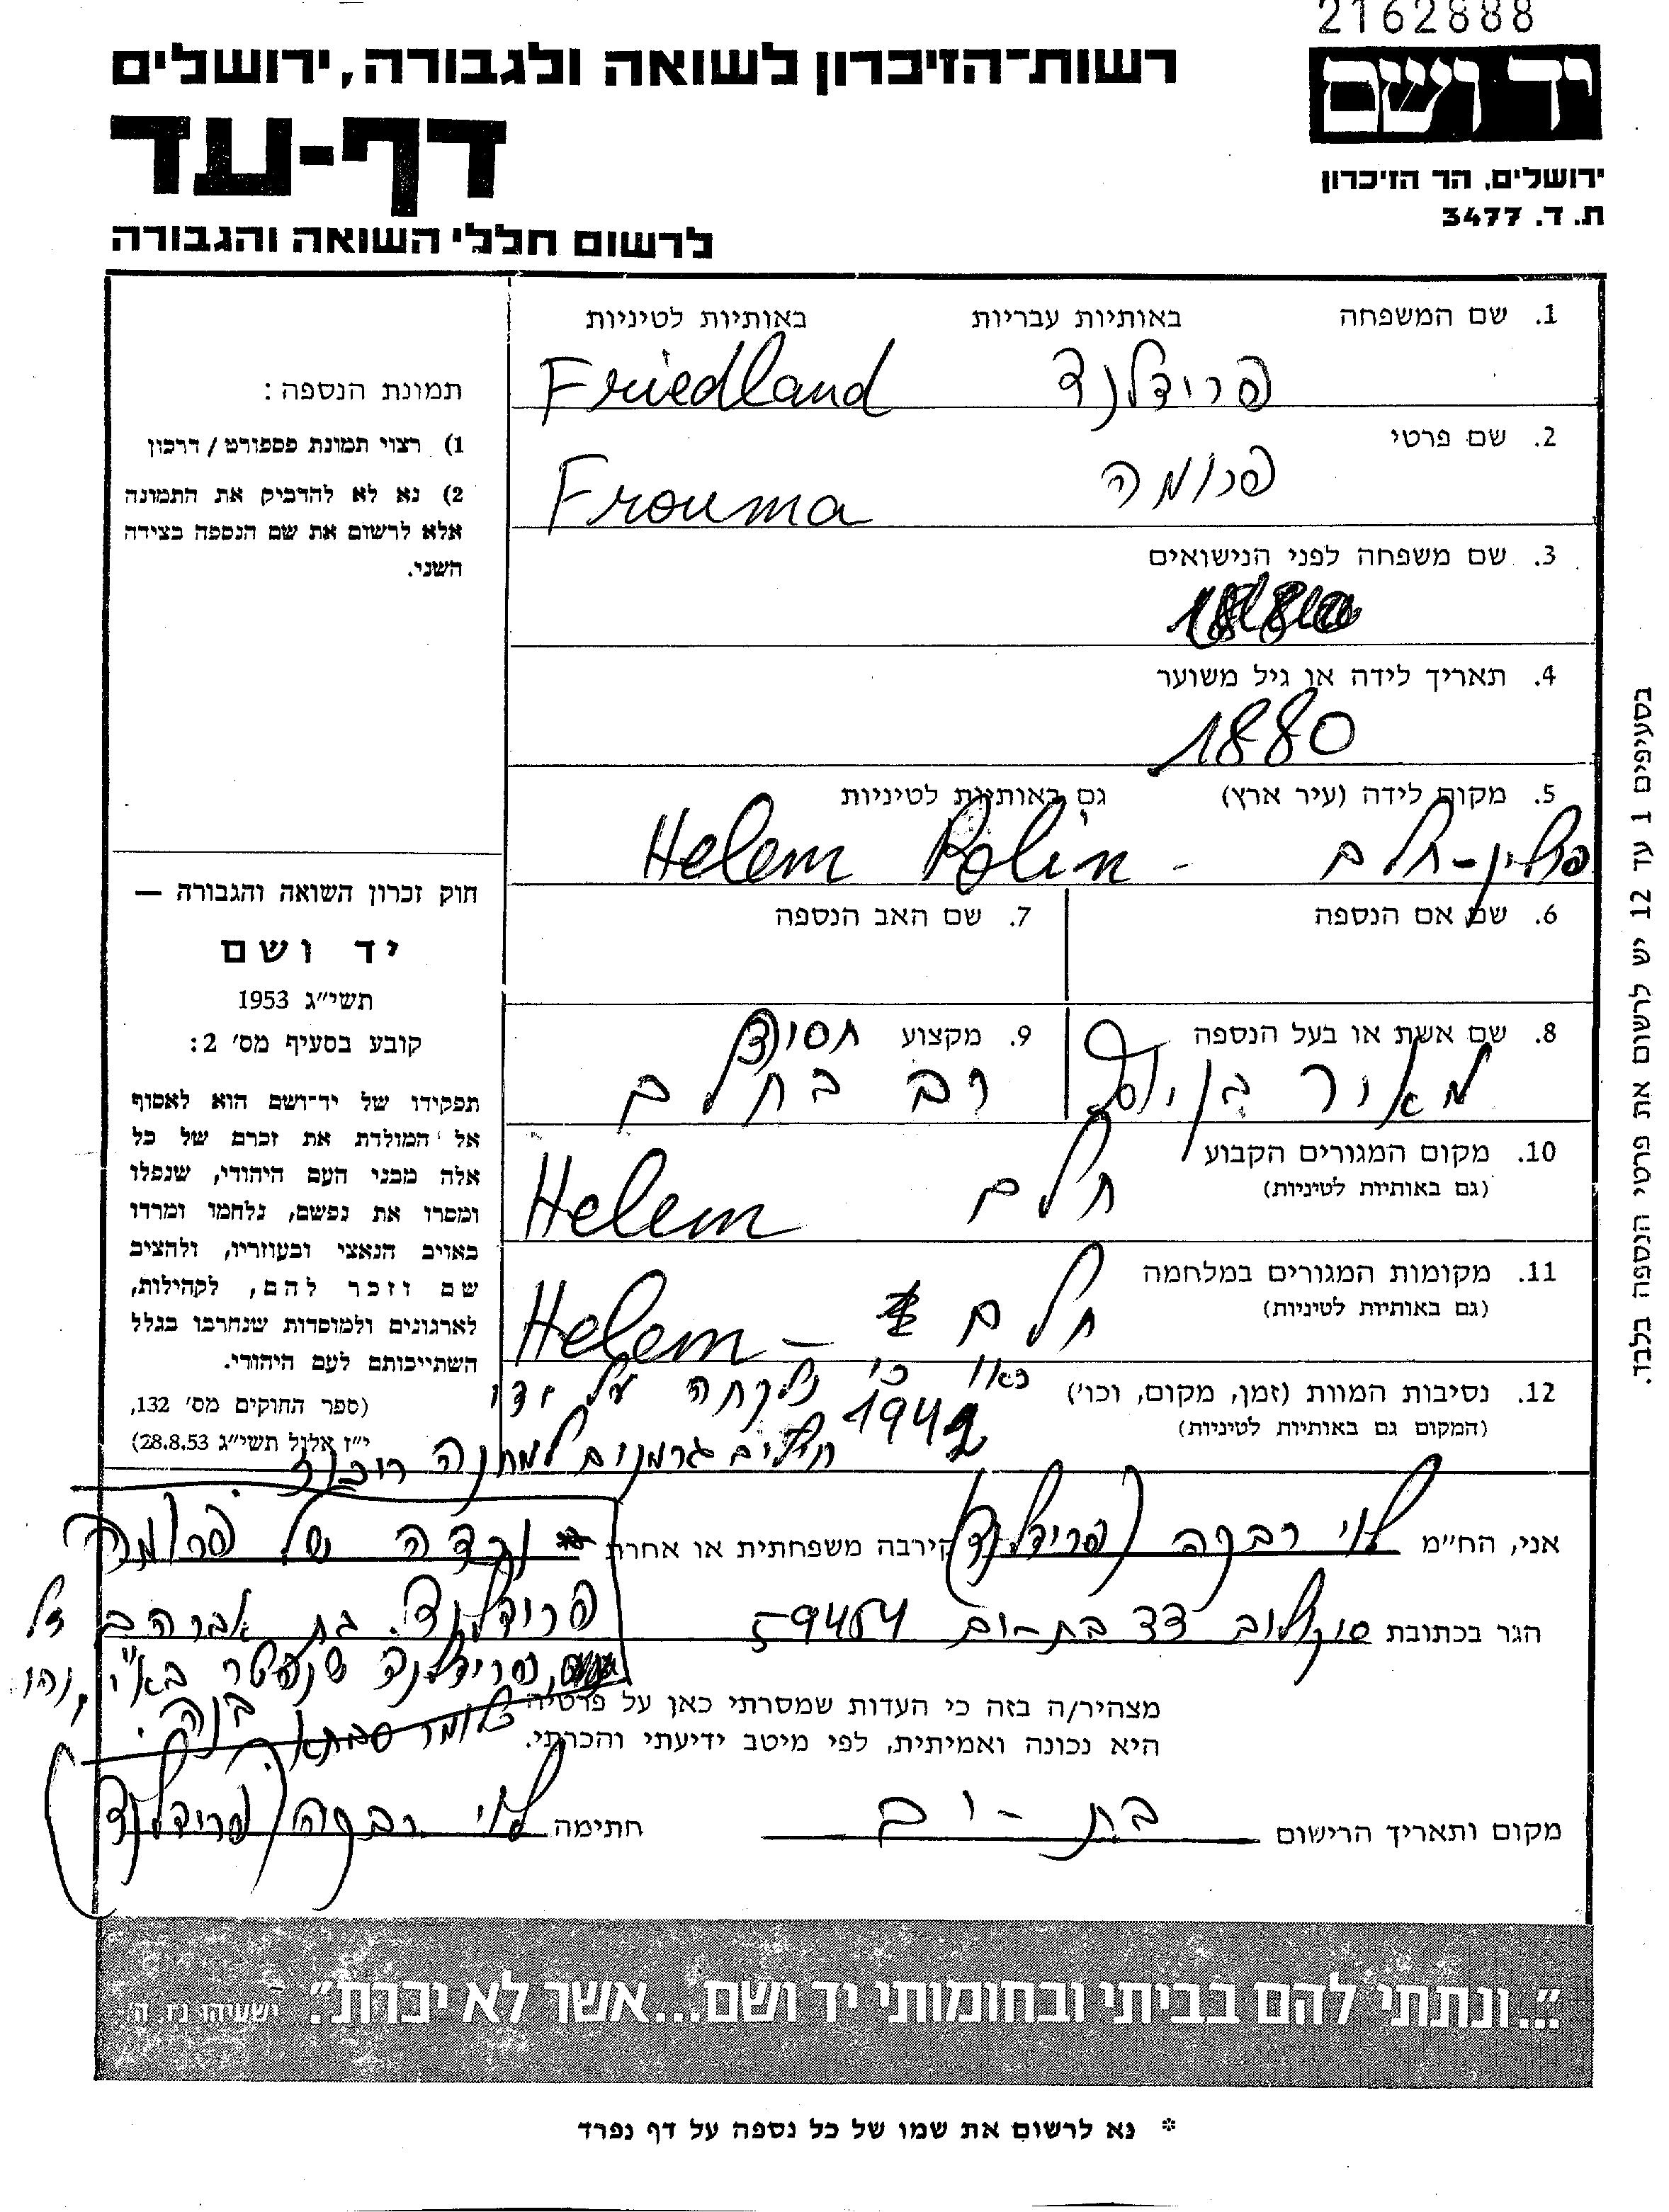 2162888
יד ושם
ירושלים, הר הזיכרון
ת. ד. 3477
רשות־הזיכרון לשואה ולגבורה, ירושלים
דף-עד
לרשום חללי השואה והגבורה
תמונת הנספה:
1) רצוי תמונת פספורט / דרכון
2) נא לא להדביק את התמונה
אלא לרשום את שם הנספה בצידה
השני.
חוק זכרון השואה והגבורה —
יד ושם
תשי״ג 1953
קובע בסעיף מס׳ 2:
תפקידו של יד־ושם הוא לאסוף
אל המולדת את זכרם של כל
אלה מבני העם היהודי, שנפלו
ומסרו את נפשם, נלחמו ומרדו
באויב הנאצי ובעוזריו, ולהציב
שם וזכר להם, לקהילות,
לארגונים ולמוסדות שנחרבו בגלל
השתייכותם לעם היהודי.
(ספר החוקים מס׳ 132,
י״ז אלול תשי״ג 28.8.53)
1. שם המשפחה באותיות עבריות באותיות לטיניות
פרידלנד Friedland
2. שם פרטי
פרומה Frouma
3. שם משפחה לפני הנישואים
4. תאריך לידה או גיל משוער
1880
5. מקום לידה (עיר ארץ) גם באותיות לטיניות
פולין-חלם - Helem Polin
6. שם אם הנספה 7. שם האב הנספה
8. שם אשת או בעל הנספה 9. מקצוע חסיד
מאיר בן יוסף רב בחלם
10. מקום המגורים הקבוע
(גם באותיות לטיניות)
חלם Helem
11. מקומות המגורים במלחמה
(גם באותיות לטיניות)
חלם Helem –
12. נסיבות המוות (זמן, מקום, וכו׳) כי נלקחה על ידי
(המקום גם באותיות לטיניות) 1942
חיילים גרמנים למחנה ריכוז
אני, הח״מ לוי רבקה (פרידלנד) קירבה משפחתית או אחרת נכדה של פרומה
פרידלנד בת אברהם ז״ל
הגר בכתובת סוקולוב 33 בת-ים 59454
פרידלנד שנפטר בא״י, והו
בנה.
כלומר סבתא
מצהיר/ה בזה כי העדות שמסרתי כאן על פרטיה
היא נכונה ואמיתית, לפי מיטב ידיעתי והכרתי.
מקום ותאריך הרישום בת-ים חתימה לוי רבקה (פרידלנד)
בסעיפים 1 עד 12 יש לרשום את פרטי הנספה בלבד.
״...ונתתי להם בביתי ובחומותי יד ושם...אשר לא יכרת״. ישעיהו נו, ה
* נא לרשום את שמו של כל נספה על דף נפרד